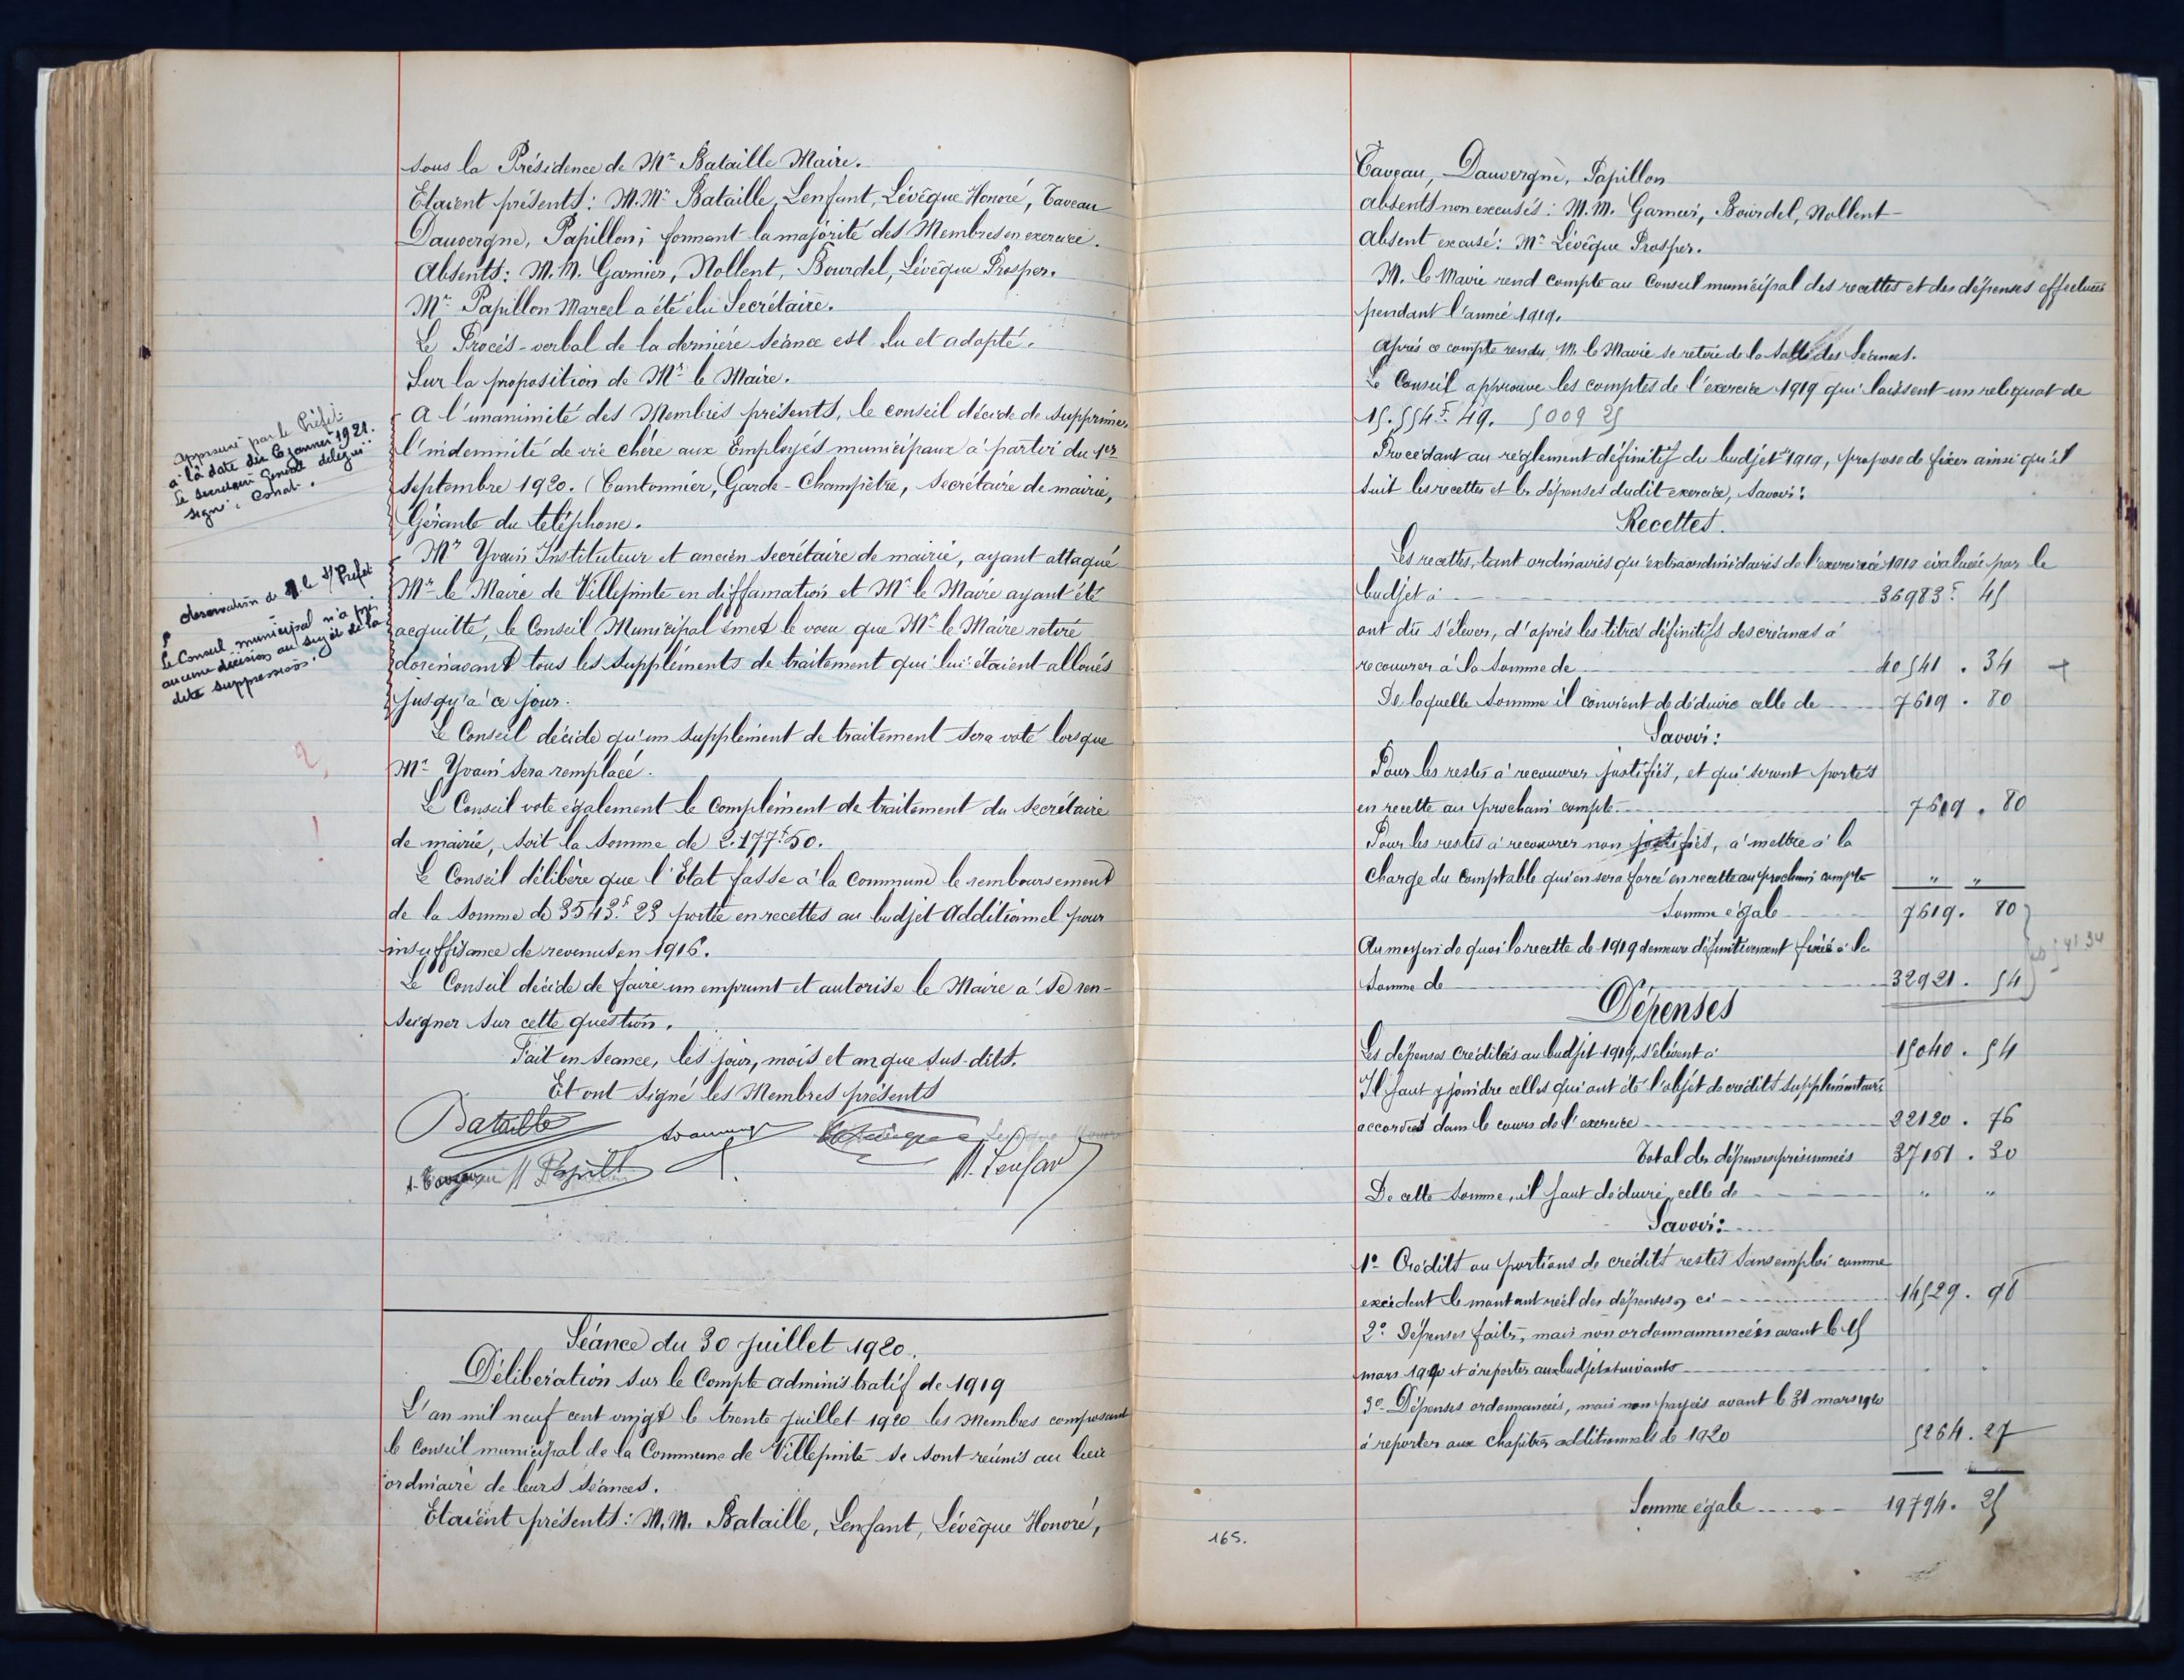 sous la Présidence de Mr Bataille Maire.
Etaient présents : M.Mrs Bataille, Lenfant, Lévêque Honoré, Taveau
Dauvergne, Papillon; formant la majorité des Membres en exercice.
Absents : M.M. Garnier, Nollent, Bourdel, Lévêque Prosper.
Mr Papillon Marcel a été élu Secrétaire.
Le Procès-verbal de la dernière séance est lu et adopté.
Sur la proposition de Mr le Maire.
A l'unanimité des Membres présents, le conseil décide de supprimer
l'indemnité de vie chère aux Employés municipaux à partir du 1er
septembre 1920. (Cantonnier, Garde-Champêtre, Secrétaire de mairie,
Gérante du téléphone.
Mr Yvain Instituteur et ancien secrétaire de mairie, ayant attaqué
Mr le Maire de Villepinte en diffamation et Mr le Maire ayant été
acquitté, le Conseil Municipal émet le voeu que Mr le Maire retire
dorénavant tous les suppléments de traitement qui lui étaient alloués
jusqu'à ce jour.
Le Conseil décide qu'un supplément de traitement sera voté lorsque
Mr Yvain sera remplacé.
Le Conseil vote également le complément de traitement du secrétaire
de mairie, soit la somme de 2.177f.50.
Le Conseil délibère que l'Etat fasse à la commune le remboursement
de la somme de 3543.f 23 portée en recettes au budjet Additionnel pour
insuffisance de revenus en 1916.
Le Conseil décide de faire un emprunt et autorise le Maire à se ren-
seigner sur cette question.
Fait en séance, les jour, mois et an que sus-dits.
Et ont signé les Membres présents
Bataille
Lévêque Honoré
A. Taveau M Papillon
M. Lenfant
approuvé par le Préfet
à la date du 6 janvier 1921.
Le Secrétaire Général délégué
signé :
observation de M. le S/Préfet
Le Conseil municipal n'a pris
aucune décision au sujet de la
dite suppression.
Séance du 30 Juillet 1920.
Délibération sur le Compte administratif de 1919
L'an mil neuf cent vingt le trente juillet 1920 les Membres composant
le Conseil municipal de la Commune de Villepinte se sont réunis au lieu
ordinaire de leurs séances.
Etaient présents : M.M. Bataille, Lenfant, Lévêque Honoré,
Taveau, Dauvergne, Papillon
absents non excusés : M.M. Garnier, Bourdel, Nollent
Absent excusé : Mr Lévêque Prosper.
M. le Maire rend compte au Conseil municipal des recettes et des dépenses effectuées
pendant l'année 1919.
Après ce compte rendu M. le Maire se retire de la salle des séances.
Le Conseil approuve les comptes de l'exercice 1919 qui laissent un reliquat de
15.554f. 49. 5009 25
Procédant au règlement définitif du budjet 1919, propose de fixer ainsi qu'il
suit les recettes et les dépenses dudit exercice, savoir :
Recettes.
Les recettes, tant ordinaires qu'extraordinidaires de l'exercice 1919 évaluées par le
budjet à 36983f 45
ont dû s'élever, d'après les titres définitifs des créances à
recouvrer à la somme de 40541 . 34
De laquelle somme il convient de déduire celle de 7619 . 80
Savoir :
Pour les restes à recouvrer justifiés, et qui seront portés
en recette au prochain compte 7619 . 80
Pour les restes à recouvrer non justifiés, à mettre à la
charge du comptable qui en sera forcé en recette au prochain compte " "
Somme égale 7619 . 80
Au moyen de quoi la recette de 1919 demeure définitivement fixée à la
somme de 32921 . 54
Dépenses
Les dépenses créditées au budjet 1919, s'élèvent à 15040 . 54
Il faut y joindre celles qui ont été l'objet de crédits supplémentaires
accordés dans le cours de l'exercice 22120 . 76
Total des dépenses présumées 37161 . 30
De cette somme, il faut déduire celle de " "
Savoir :
1o Crédits ou portions de crédits restés sans emploi comme
excédent le montant réel des dépenses, ci 14529 . 98
2o Dépenses faites, mais non ordonnannancées avant le 15
mars 1920 et à reporter aux budjets suivants
3o Dépenses ordonnancées, mais non payées avant le 31 mars 1920
à reporter aux chapitres additionnels de 1920 5264 . 27
Somme égale 19794 . 25
165.